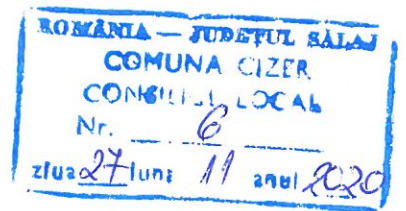 ROMÂNIA — JUDEŢUL SĂLAJ
COMUNA CIZER
CONSILIUL LOCAL
Nr. 6
ziua 27 luna 11 anul 2020